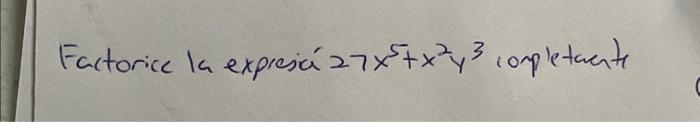 Factorice la expresió 27x⁵+x²y³ completamente